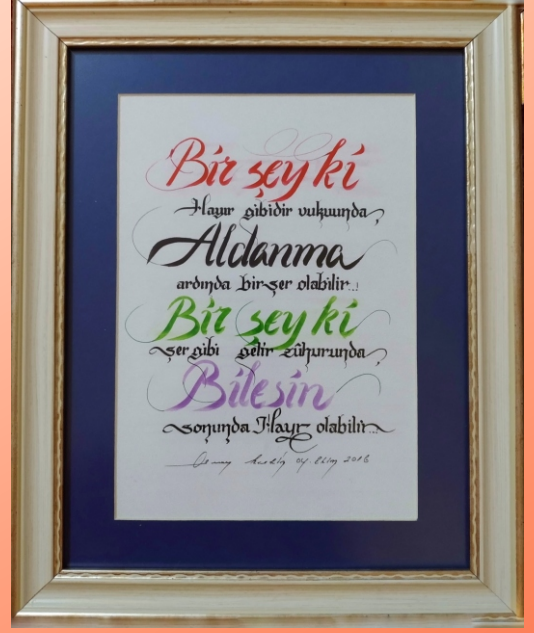 Bir şey ki
Hayır gibidir vukuunda,
Aldanma
ardında bir şer olabilir..!
Bir şey ki
Şer gibi gelir zûhurunda,
Bilesin
sonunda Hayr olabilir..
04. Ekim 2016